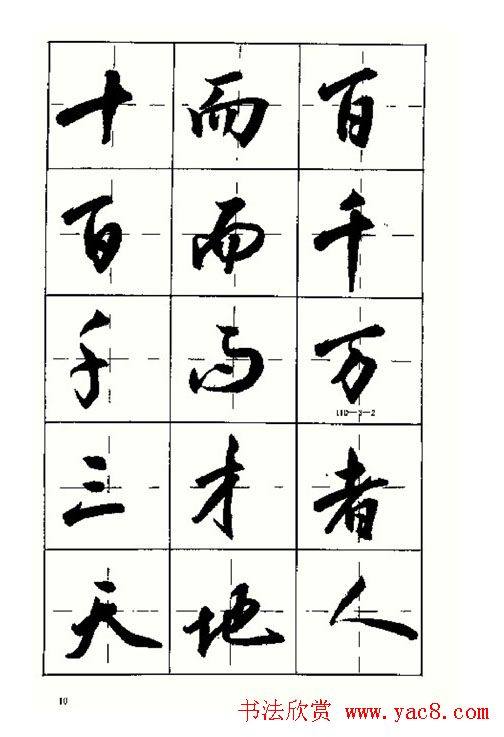 十而百
百而千
千而万
三才者
天地人
10
书法欣赏 www.yac8.com